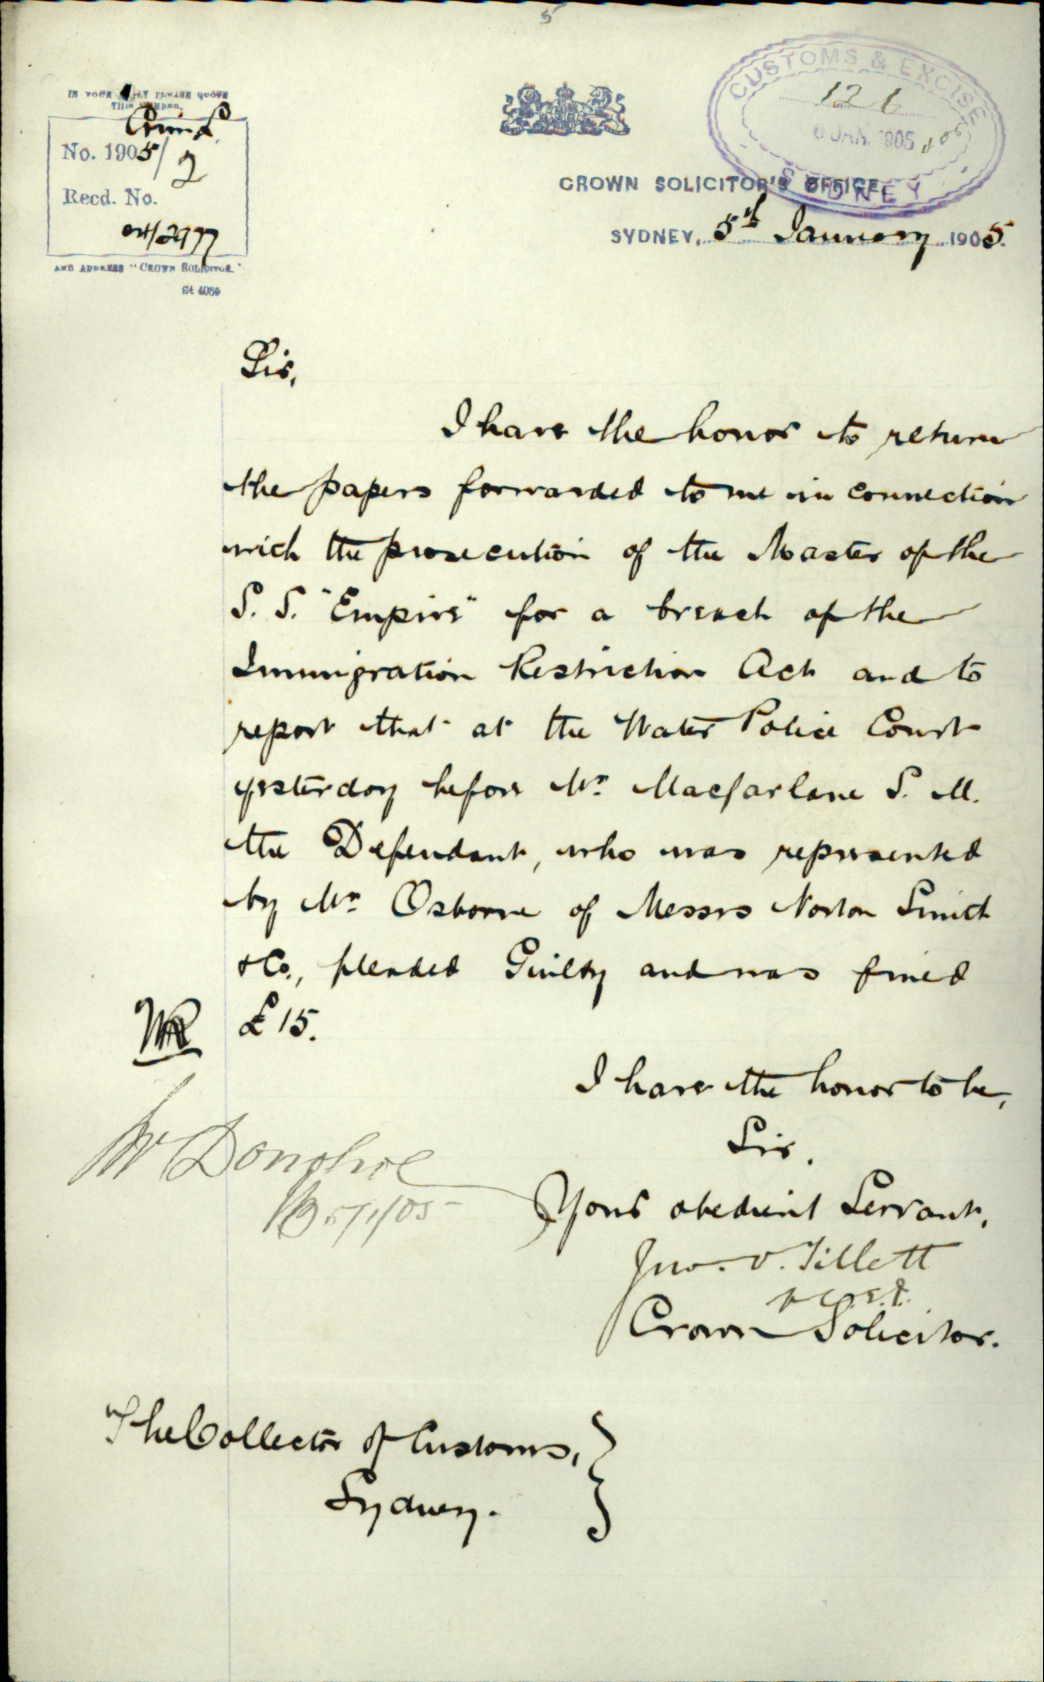 5
IN YOUR REPLY PLEASE QUOTE
THIS NUMBER.
Crim L.
No. 1905/2
Recd. No.
04/2977
AND ADDRESS "CROWN SOLICITOR."
St 4086
CUSTOMS & EXCISE
126
6 JAN. 1905
SYDNEY
CROWN SOLICITOR'S OFFICE,
SYDNEY, 5th January 1905.
Sir,
I have the honor to return
the papers forwarded to me in connection
with the prosecution of the Master of the
S. S. "Empire" for a breach of the
Immigration Restriction Act and to
report that at the Water Police Court
yesterday before Mr. Macfarlane S. M.
the Defendant, who was represented
by Mr. Osborne of Messrs Norton Smith
& Co., pleaded Guilty and was fined
£15.
I have the honor to be,
Sir,
Your obedient Servant,
Jno. V. Tillett
Crown Solicitor.
Mr Donohoe
5/1/05
The Collector of Customs,
Sydney.